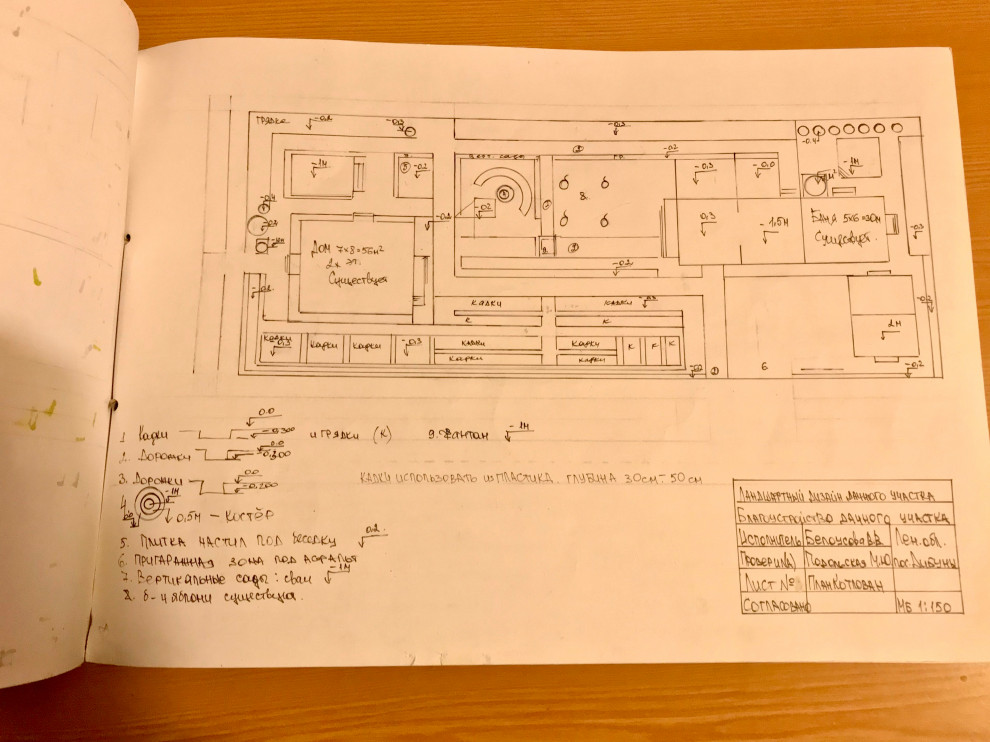 грядке -0.2 -0.3
-0.3
-0.4
-1М
8 -0.2
верт. сады
2 -0.2
-0.3 -0.0
-1М
-0.4
-0.2
ДОМ 7х8=56м²
2х эт.
Существует
-0.2
4
8
0.3 -1,5М
Баня 5х6=30м
Существует.
-0.3
-0.2
-0.2
кадки кадки -0.3
К К
Кадки -0.3 Кадки Кадки -0.3 кадки Кадку К К К
Кадки кадки
-2М
6
-0.2
1 Кадки 0.0 -0.300 и грядки (К) 9. Фантан -1М
2. Дорожки 0.0 -0.200
3. Дорожки 0.0 -0.200
КАДКИ ИСПОЛЬЗОВАТЬ ИЗ ПЛАСТИКА. ГЛУБИНА 30см-50см
4. -1М
0,5М – Костёр
5. Плитка настил под беседку 0.2
6. ПРИГАРАННАЯ ЗОНА ПОД АСФАЛЬТ
7. Вертикальные сады: сваи -1М
8. 8-и яблони существуя.
Ландшафтный дизайн данного участка
Благоустройство дачного участка
Исполнитель Белоусова В.В Лен.обл.
Проверил(а) Подольская М.Ю пос Дибуны
Лист № План Котлован
Согласовано МБ 1:150